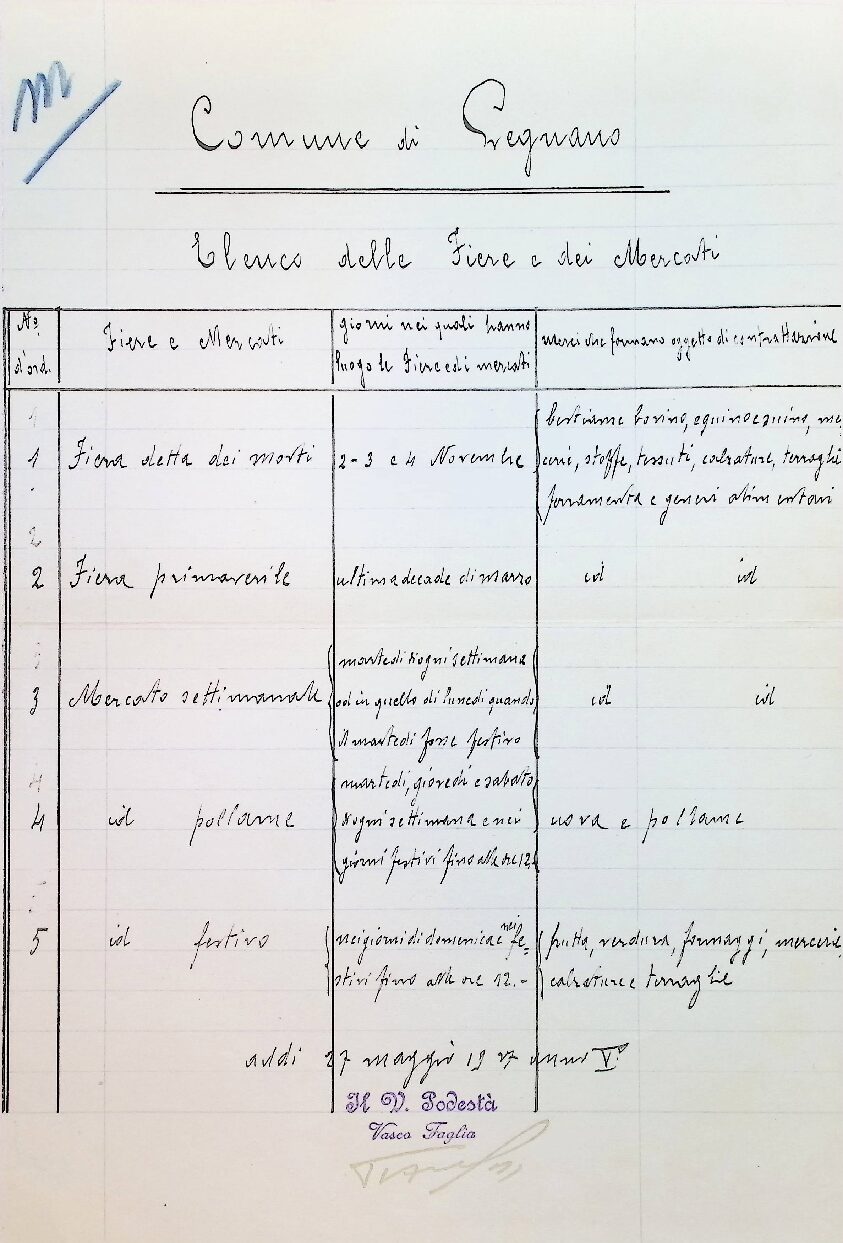 M
Comune di Legnano
Elenco delle Fiere e dei Mercati
No. d'ord. Fiere e Mercati giorni nei quali hanno luogo le Fiere ed i mercati merci che formano oggetto di contrattazione
bestiame bovino, equino e suino, mer
1 Fiera detta dei morti 2-3 e 4 Novembre cerie, stoffe, tessuti, calzature, terraglie
ferramenta e generi alimentari
2 Fiera primaverile ultima decade di marzo id id
martedi d'ogni settimana
3 Mercato settimanale od in quello di lunedi quando id id
il martedi fosse festivo
martedi, giovedi e sabato
4 id pollame d'ogni settimana e nei uova e pollame
giorni festivi fino alle ore 12.
5 id festivo nei giorni di domenica e nei fe- frutta, verdura, formaggi, mercerie,
stivi fino alle ore 12.- calzature e terraglie
addi 27 maggio 1927 anno V°
Il V. Podestà
Vasco Faglia